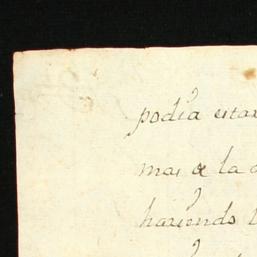 podia estar
mas de la
haziendo